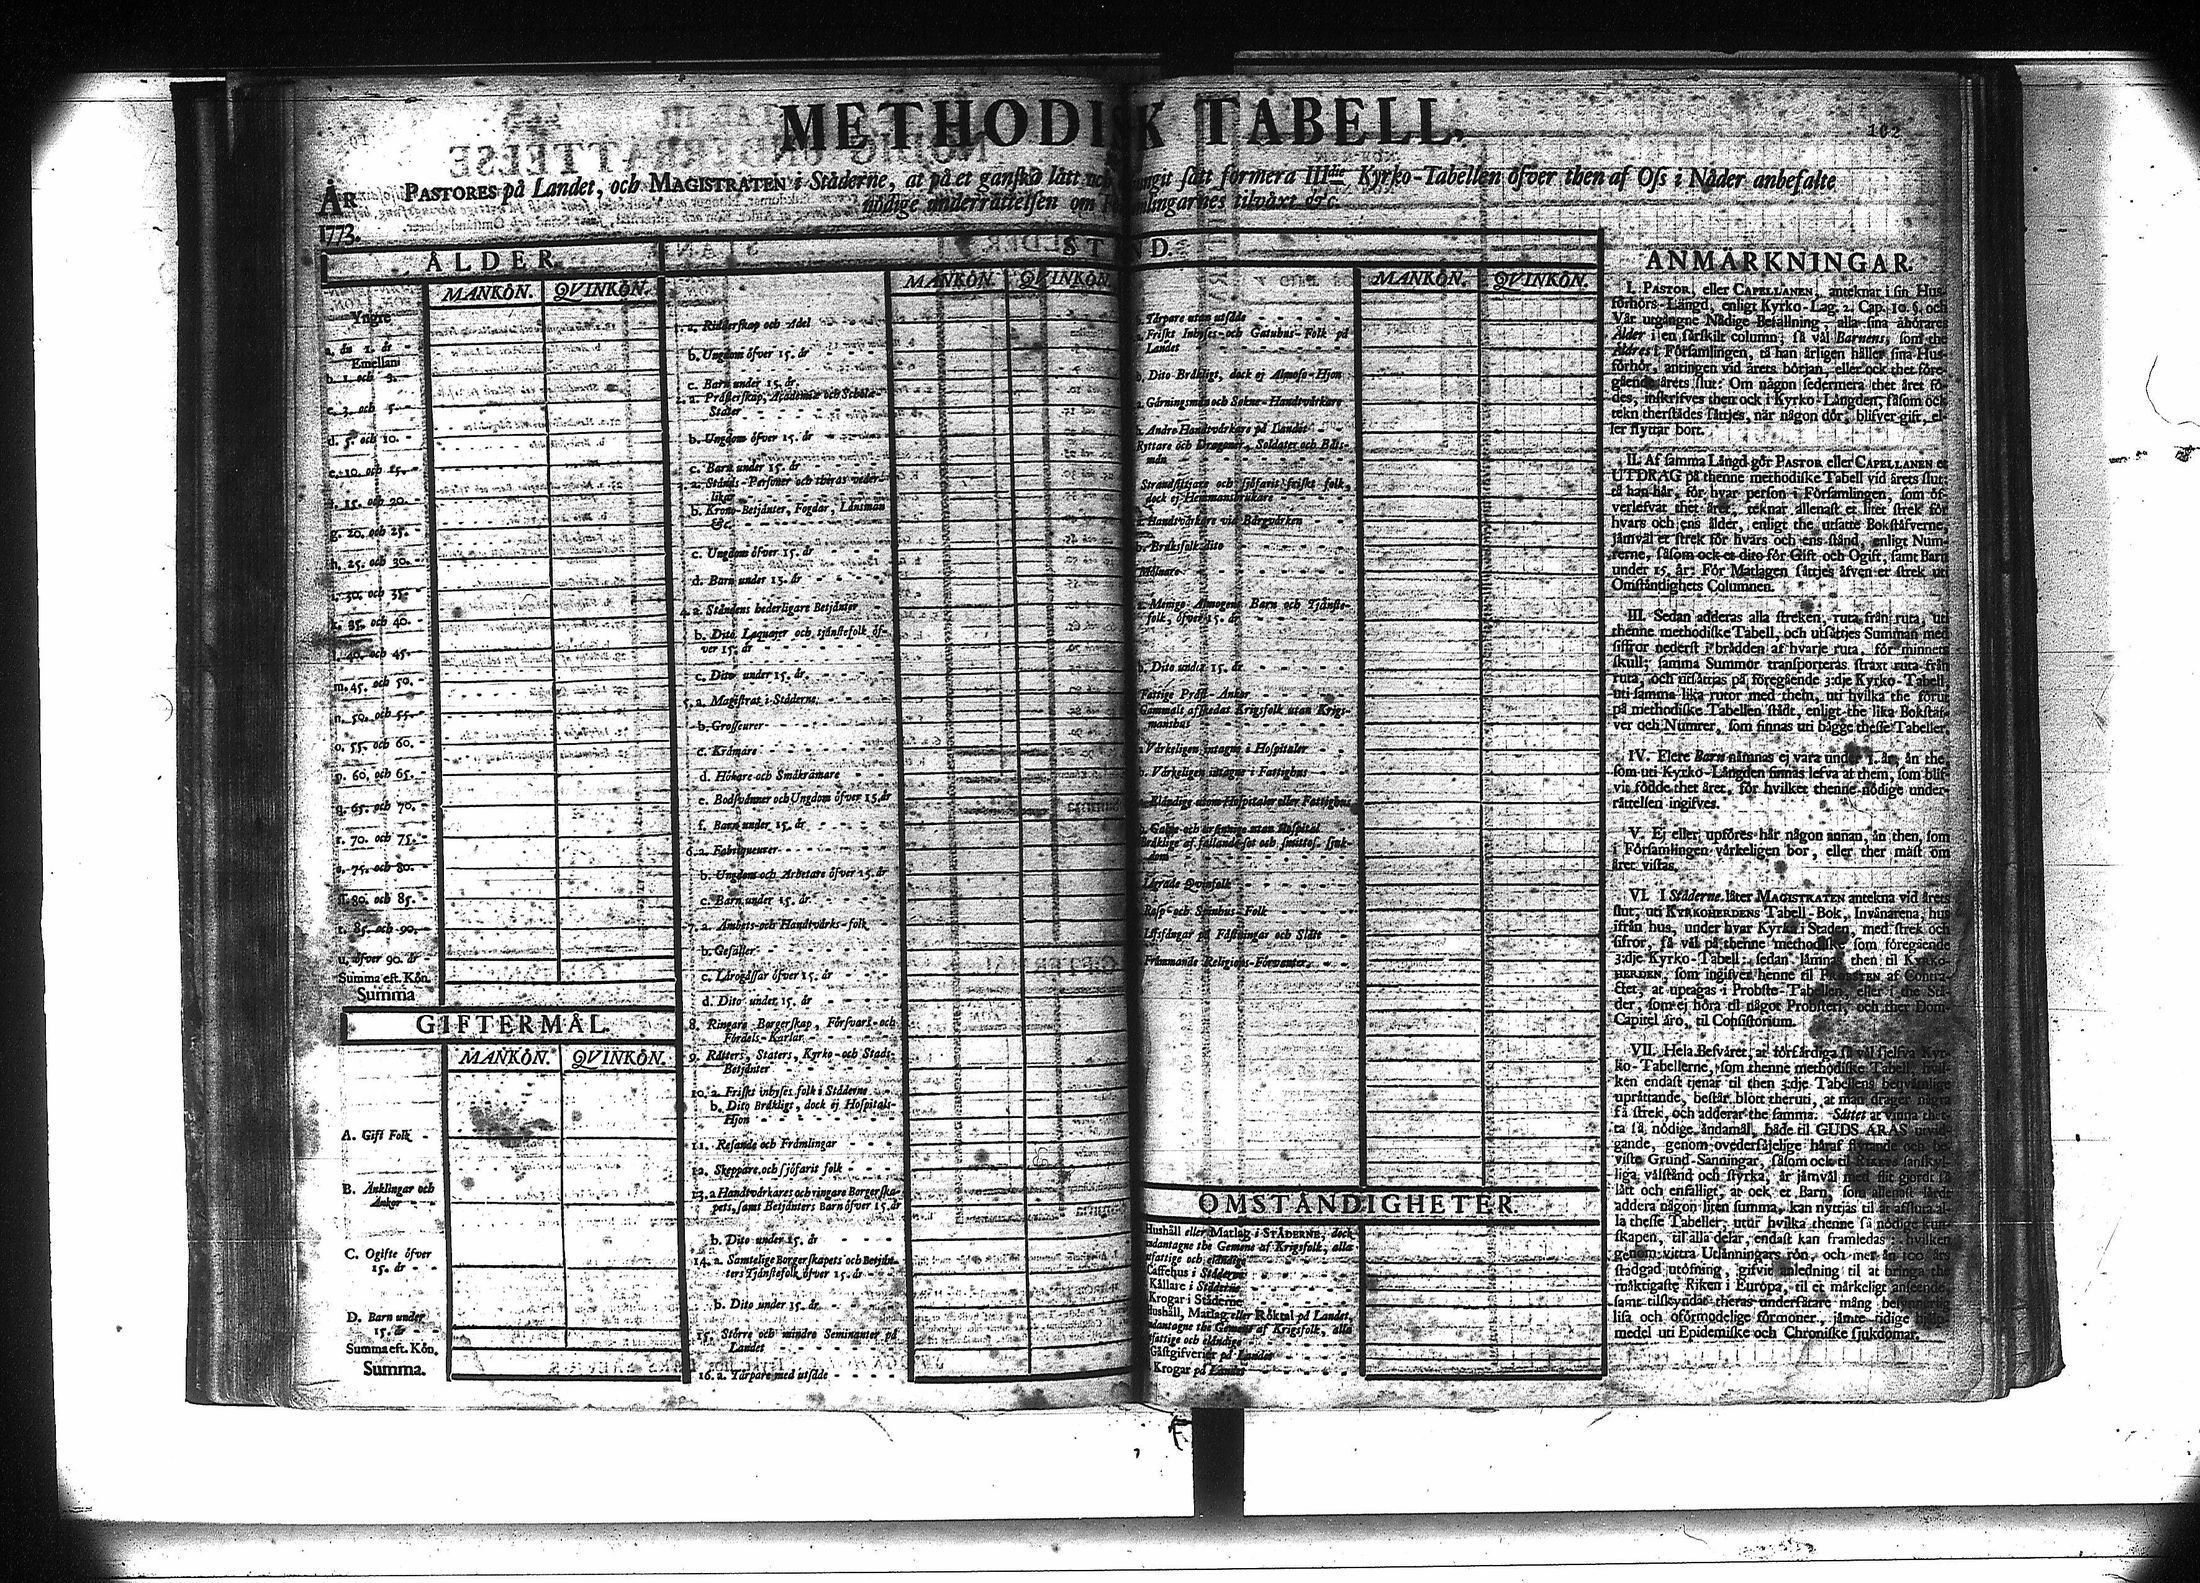 METHODISK TABELL.
102
ÅR
1773.
PASTORES på Landet, och MAGISTRATEN i Städerne, at på et ganska lätt och sätt formera IIIdie Kyrko-Tabellen öfver then af Oss i Nåder anbefalte
nödige underrättelsen om tilväxt &c.
ÅLDER.
MANKÖN. QVINKÖN.
Yngre
a. än 1. år
Emellan
b. 1. och 3.
c. 3. och 5.
d. 5. och 10.
e. 10. och 15.
f. 15. och 20.
g. 20. och 25.
h. 25. och 30.
i. 30. och 35.
k. 35. och 40.
l. 40. och 45.
m. 45. och 50.
n. 50. och 55.
o. 55. och 60.
p. 60. och 65.
q. 65. och 70.
r. 70. och 75.
s. 75. och 80.
ſſ. 80. och 85.
t. 85. och 90.
u. öfver 90. år
Summa eft. Kön.
Summa
GIFTERMÅL.
MANKÖN. QVINKÖN.
A. Gift Folk
B. Änklingar och
Änkor
C. Ogifte öfver
15. år
D. Barn under
15. år
Summa eft. Kön.
Summa.
STÅND.
MANKÖN. QVINKÖN.
1. a. Ridderskap och Adel
b. Ungdom öfver 15. år
c. Barn under 15. år
2. a. Prästerskap, Academiæ och Schole-
Stater
b. Ungdom öfver 15. år
c. Barn under 15. år
3. a. Stånds-Personer och theras veder-
likar
b. Krono-Betjänter, Fogdar, Länsmän
&c.
c. Ungdom öfver 15. år
d. Barn under 15. år
4. a. Ståndens hederligare Betjänter
b. Dito Laquajer och tjänstefolk öf-
ver 15. år
c. Dito under 15. år
5. a. Magistrat i Städerne
b. Grosseurer
c. Krämare
d. Hökare och Småkrämare
e. Bodsvänner och Ungdom öfver 15. år
f. Barn under 15. år
6. a. Fabriqueurer
b. Ungdom och Arbetare öfver 15. år
c. Barn under 15. år
7. a. Ämbets- och Handtvärks-folk
b. Gesäller
c. Lärogåssar öfver 15. år
d. Dito under 15. år
8. Ringare Borgerskap, Försvars- och
Fördels-Karlar
9. Rätters, Staters, Kyrko- och Stads-
Betjänter
10. a. Friskt inhyses folk i Städerne
b. Dito Bräkligt, dock ej Hospitals-
Hjon
11. Resande och Främlingar
12. Skeppare och sjöfarit folk
13. a. Handtvärkares och ringare Borgerska-
pets, samt Betjänters Barn öfver 15. år
b. Dito under 15. år
14. a. Samtelige Borgerskapets och Betjän-
ters Tjänstefolk öfver 15. år
b. Dito under 15. år
15. Större och mindre Seminanter på
Landet
16. a. Tärpare med utsäde
MANKÖN. QVINKÖN.
Tärpare utan utsäde
Friskt Inhyses- och Gatuhus-Folk på
Landet
Dito Bräkligt, dock ej Almoso-Hjon
Gärningsmän och Sokne-Handtvärkare
Andre Handtvärkare på Landet
Ryttare och Dragoner, Soldater och Båts-
män
Strandsittjare och sjöfarit friskt folk,
dock ej Hemmansbrukare
Handtvärkare vid Bärgvärken
Bruksfolk dito
Mölnare
Menige Almogens Barn och Tjänste-
folk, öfver 15. år
Dito under 15. år
Fattige Präst-Änkor
Gammalt afskedat Krigsfolk utan Krigs-
manshus
Värkeligen intagne i Hospitaler
Värkeligen intagne i Fattighus
Eländige utom Hospitaler eller Fattighus
Galne och ursinnige utan Hospital
Bräklige af fallande-sot och smittos. sjuk-
dom
Lägrade Qvinfolk
Rasp- och Spinhus-Folk
Lifsfångar på Fästningar och Slått
Främmande Religions-Förvanter
OMSTÄNDIGHETER.
Hushåll eller Matlag i STÄDERNE, dock
undantagne the Gemene af Krigsfolk, alla
utfattige och eländige
Caffehus i Städerne
Källare i Städerne
Krogar i Städerne
Hushåll, Matlag eller Röktal på Landet,
undantagne the Gemene af Krigsfolk, alla
utfattige och eländige
Gästgifverier på Landet
Krogar på Landet
ANMÄRKNINGAR.
I. PASTOR, eller CAPELLANEN, anteknar i sin Hus-
förhörs-Längd, enligt Kyrko-Lag. 2. Cap. 10. §. och
Vår utgångne Nådige Befallning, alla sina åhörares
Ålder i en särskilt column, så väl Barnens, som the
Äldres i Församlingen, tå han årligen håller sina Hus-
förhör, antingen vid årets början, eller ock thet före-
gående årets slut: Om någon sedermera thet året fö-
des, inskrifves then ock i Kyrko-Längden, såsom ock
tekn therstädes sättjes, när någon dör, blifver gift, el-
ler flyttar bort.
II. Af samma Längd gör PASTOR eller CAPELLANEN et
UTDRAG på thenne methodiske Tabell vid årets slut:
tå han här, för hvar person i Församlingen, som öf-
verlefvat thet året, teknar allenast et litet strek för
hvars och ens ålder, enligt the utsatte Bokstäfverne,
jämväl et strek för hvars och ens stånd, enligt Num-
rerne, såsom ock et dito för Gift och Ogift, samt Barn
under 15. år: För Matlagen sättjes äfven et strek uti
Omständighets Columnen.
III. Sedan adderas alla streken, ruta från ruta, uti
thenne methodiske Tabell, och utsättjes Summan med
siffror nederst i brädden af hvarje ruta, för minnets
skull; samma Summor transporteras straxt ruta från
ruta, och utsättjas på föregående 3:dje Kyrko-Tabell,
uti samma lika rutor med them, uti hvilka the förut
på methodiske Tabellen stådt, enligt the lika Bokstäf-
ver och Numrer, som finnas uti bägge thesse Tabeller.
IV. Flere Barn nämnas ej vara under 1. år, än the,
som uti Kyrko-Längden finnas lefva af them, som blif-
vit födde thet året, för hvilket thenne nödige under-
rättelsen ingifves.
V. Ej eller upföres här någon annan, än then, som
i Församlingen värkeligen bor, eller ther mäst om
året vistas.
VI. I Städerne låter MAGISTRATEN antekna vid årets
slut, uti KYRKOHERDENS Tabell-Bok, Invånarena, hus
ifrån hus, under hvar Kyrka i Staden, med strek och
sifror, så väl på thenne methodiske som föregående
3:dje Kyrko-Tabell: sedan lämnas then til KYRKO-
HERDEN, som ingifver henne til PROBSTEN af Contra-
ctet, at uptagas i Probste-Tabellen, eller i the Stä-
der, som ej höra til något Probsteri, och ther Dom-
Capitel äro, til Consistorium.
VII. Hela Besväret, at förfärdiga så väl sjelfva Kyr-
ko-Tabellerne, som thenne methodiske Tabell, hvil-
ken endast tjenar til then 3:dje Tabellens beqvämlige
uprättande, består blott theruti, at man drager några
få strek, och adderar the samma. Sättet at vinna thet-
ta så nödige ändamål, både til GUDS ÄRAS utvid-
gande, genom ovedersäjelige häraf flytande och be-
viste Grund-Sanningar, såsom ock til RIKETS sanskyl-
liga välstånd och styrka, är jämväl med flit gjordt så
lätt och enfälligt, at ock et Barn, som allenast lärdt
addera någon liten summa, kan nyttjas til at afsluta al-
la thesse Tabeller, utur hvilka thenne så nödige kun-
skapen, til alla delar, endast kan framledas: hvilken
genom vittra Utlänningars rön, och mer än 100 års
stadgad utöfning, gifvit anledning til at bringa the
mäktigaste Riken i Europa, til et märkeligt anseende,
samt tilskyndat theras undersåtare mång besynnerlig
lisa och oförmodelige förmoner, jämte tidige hjelp-
medel uti Epidemiske och Chroniske sjukdomar.